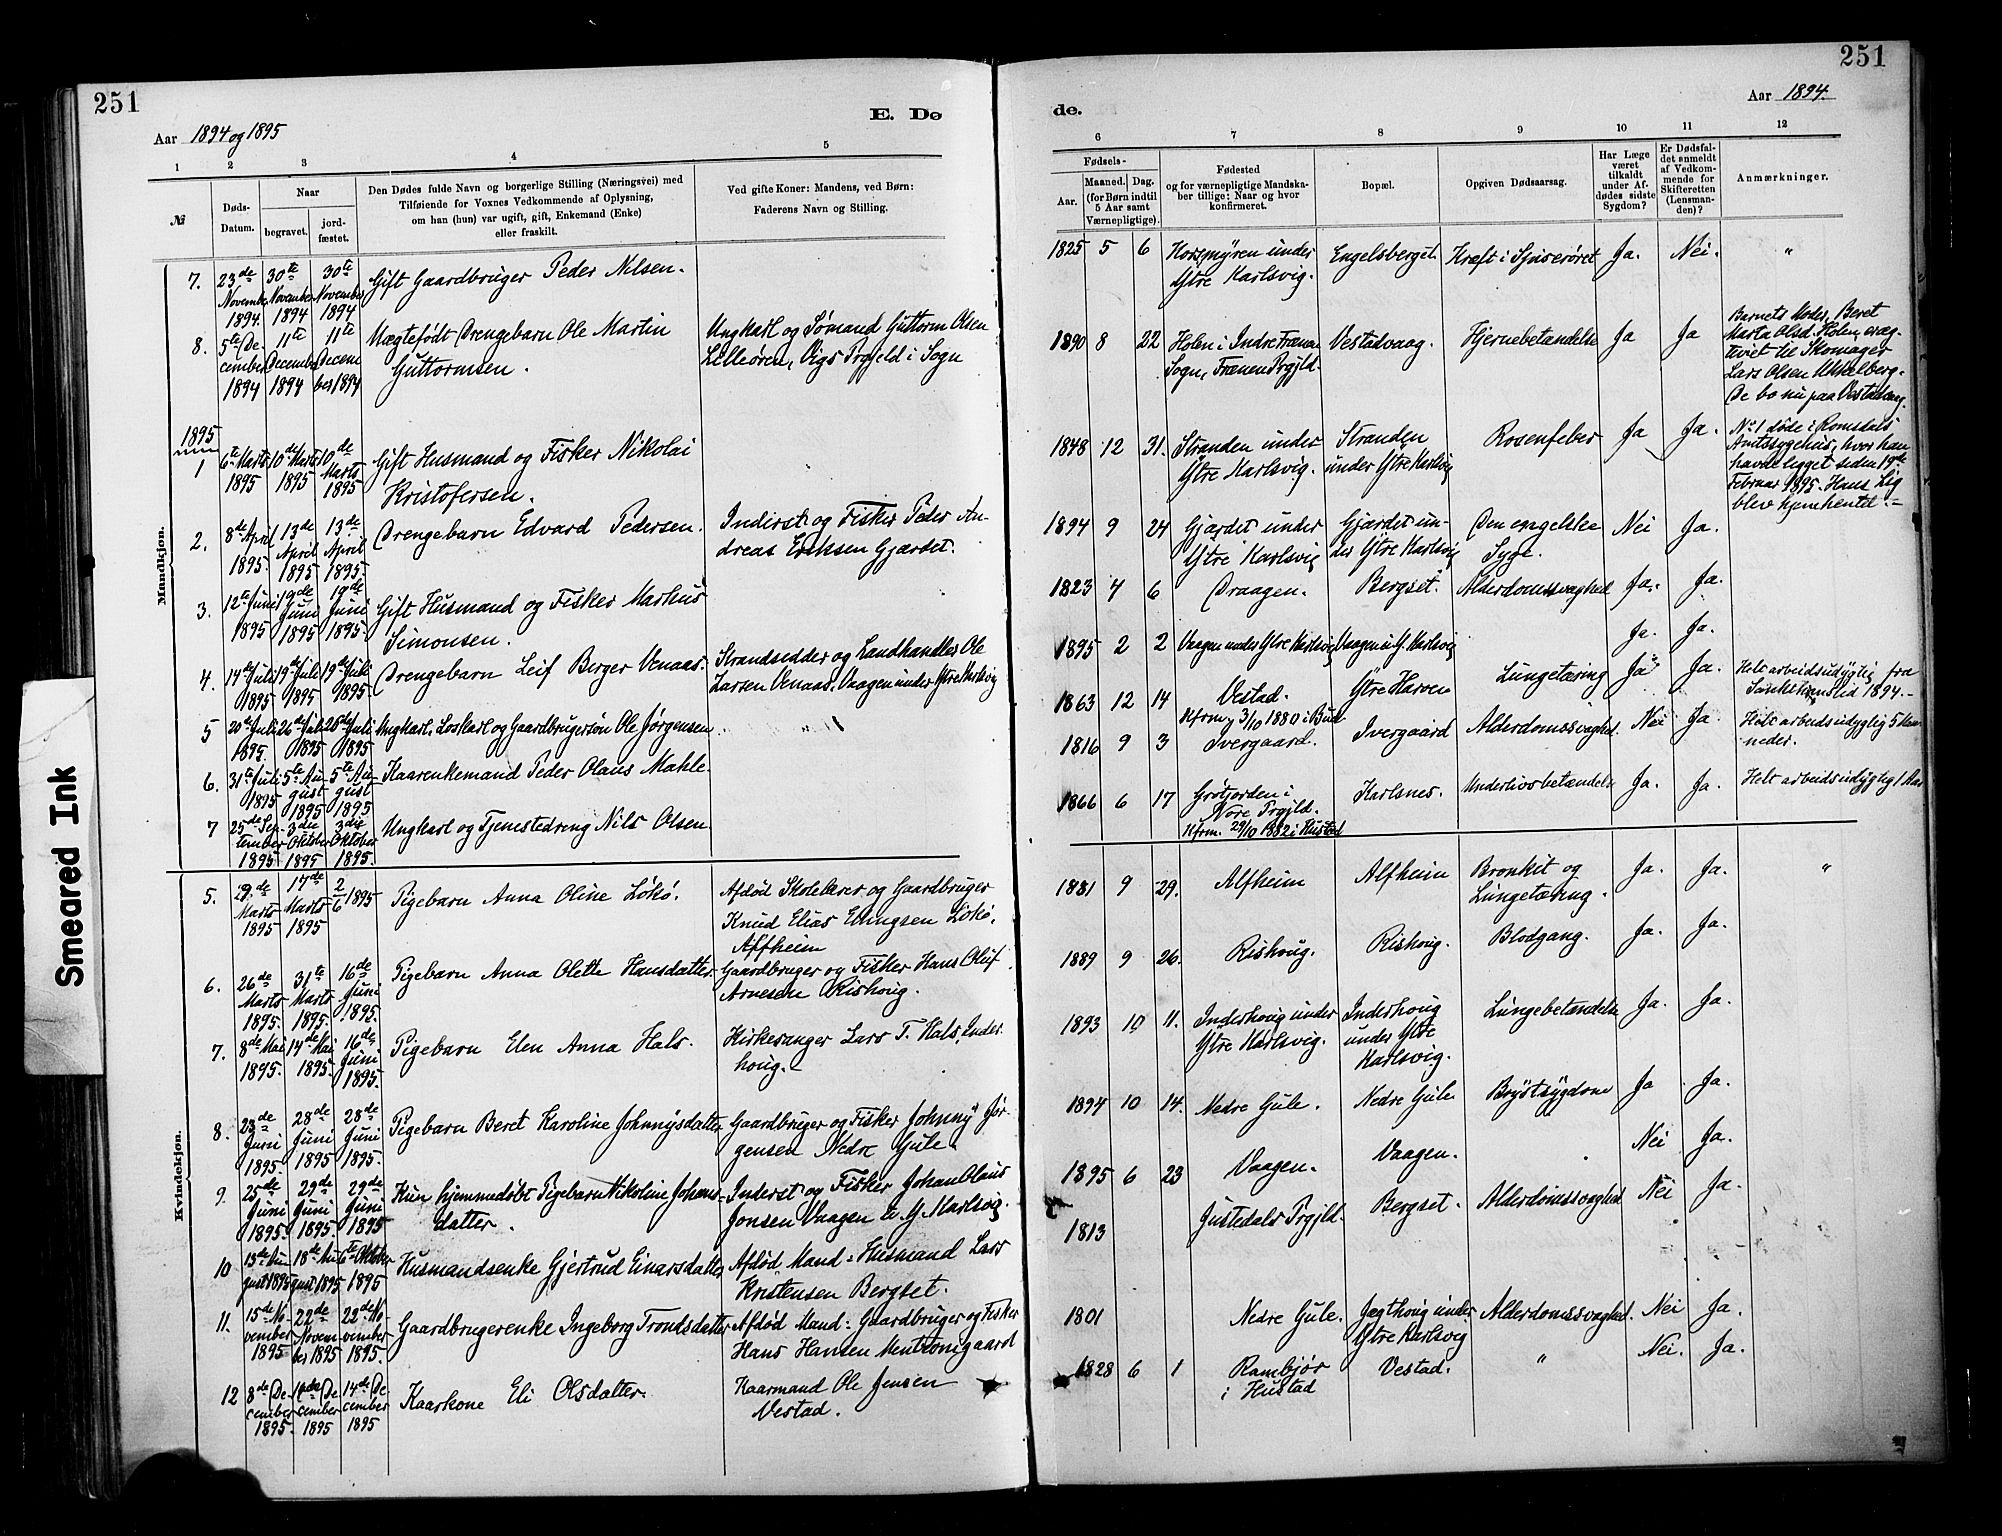 251
Aar 1894 og 1895
E. Dø
1 2 3 4 5
№
Døds-
Datum.
Naar
begravet.
jord-
fæstet.
Den Dødes fulde Navn og borgerlige Stilling (Næringsvei) med
Tilføiende for Voxnes Vedkommende af Oplysning,
om han (hun) var ugift, gift, Enkemand (Enke)
eller fraskilt.
Ved gifte Koner: Mandens, ved Børn:
Faderens Navn og Stilling.
Mandkjøn.
7. 23de November 1894. 30te November 1894 30te November 1894 Gift Gaardbruger Peder Nilsen.
8. 5te December 1894 11te December 1894 11te December 1894 Uægtefødt Drengebarn Ole Martin
Guttormsen.
Ungkarl og Sømand Guttorm Olsen
Lilleøren, Vigs Prgjeld i Sogn
1895
1 6te Marts 1895 10de Marts 1895 10de Marts 1895 Gift Husmand og Fisker Nikolai
Kristofersen.
2. 8de April 1895. 13de April 1895 13de April 1895. Drengebarn Edvard Pedersen.
Inderst og Fisker Peder An-
dreas Eriksen Gjærdet.
3. 12te Juni 1895 19de Juni 1895 19de Juni 1895. Gift Husmand og Fisker Markus
Simonsen.
4. 14de Juli 1895 19de Juli 1895 19de Juli 1895. Drengebarn Leif Berger Venaas.
Strandsedder og Landhandler Ole
Larsen Venaas, Vaagen under Ytre Karlsvig
5 20de Juli 1895. 26de Juli 1895 26de Juli 1895 Ungkarl, Løskarl og Gaardbrugersøn Ole Jørgensen
6. 31te Juli 1895 5te August 1895 5te August 1895 Kaarenkemand Peder Olaus Mahle.
7 25de September 1895 3die Oktober 1895 3die Oktober 1895. Ungkarl og Tjenestedreng Nils Olsen
Kvindekjøn.
5. 9de Marts 1895 17de Marts 1895 2/6 1895 Pigebarn Anna Oline Løkø.
Afdød Skolelærer og Gaardbruger
Knud Elias Ellingsen Løkø,
Alfheim
6. 26de Marts 1895. 31te Marts 1895. 16de Juni 1895. Pigebarn Anna Olette Hansdatter.
Gaardbruger og Fisker Hans Oluf
Arnesen Rishoug.
7. 8de Mai 1895. 14de Mai 1895. 16de Juni 1895. Pigebarn Elen Anna Hals.
Kirkesanger Lars T. Hals, Inder-
houg.
8. 23de Juni 1895. 28de Juni 1895 28de Juni 1895. Pigebarn Beret Karoline Johnnysdatter
Gaardbruger og Fisker Johnny Jør-
gensen Nedre Gule.
9. 25de Juni 1895. 29de Juni 1895. 29de Juni 1895 Kun hjemmedøbt Pigebarn Nikoline Johans-
datter.
Inderst og Fisker Johan Olaus
Jonsen Vaagen u. Y. Karlsvig.
10 13de August 1895 18de August 1895 6te Oktober 1895 Husmandsenke Gjertrud Einarsdatter
Afdød Mand: Husmand Lars
Kristensen Bergset.
11. 15de November 1895 22de November 1895 22de November 1895. Gaardbrugerenke Ingeborg Trondsdatter
Afdød Mand: Gaardbruger og Fisker
Hans Hansen Mentzonigaard
12 8de December 1895. 14de December 1895 14de December 1895 Kaarkone Eli Olsdatter.
Kaarmand Ole Jensen
Vestad.
251
de.
Aar 1894.
6 7 8 9 10 11 12
Fødsels-
Aar.
Maaned. Dag.
(for Børn indtil
5 Aar samt
Værnepligtige).
Fødested
og for værnepligtige Mandska-
ber tillige: Naar og hvor
konfirmeret.
Bopæl.
Opgiven Dødsaarsag.
Har Læge
været
tilkaldt
under Af-
dødes sidste
Sygdom?
Er Dødsfal-
det anmeldt
af Vedkom-
mende for
Skifteretten
(Lensman-
den)?
Anmærkninger.
1825 5 6 Horsmyren under
Ytre Karlsvig. Engelsberget. Kræft i Spiserøret Ja. Nei. "
1890 8 22 Holen i Indre Frænen
Sogn, Frænen Prgjld. Vestadvaag. Hjernebetændelse Ja Ja
Barnets Moder, Beret
Marta Olsd. Holen, er æg-
teviet til Skomager
Lars Olsen
De bo nu paa Vestadvaag.
1848 12 31. Stranden under
Ytre Karlsvig. Stranden
under Ytre Karlsvig Rosenfeber Ja Ja.
No 1 døde i Romsdals
Amtssygehus, hvor han
havde ligget siden 19de
Februar 1895. Hans Lig
blev hjemhentet.-
1894 9 24 Gjærdet under
Ytre Karlsvig Gjærdet un-
der Ytre Karlsvig Den engelske
Syge. Nei Ja.
1823 4 6 Draagen. Bergset. Alderdomssvaghed Ja. Ja.
1895 2 2 Vaagen under Ytre Karlsvig Vaagen u. Y. Karlsvig Ja. Ja.
1863 12 14 Vestad.
Kfrm. 3/10 1880 i Bud Ytre Harøen Lungetæring Ja Ja.
Helt arbeidsudygtig fra
1894.-
1816 9 3 Ivergaard. Ivergaard Alderdomssvaghed. Nei Ja.
Helt arbeidsudygtig 5 Maa-
neder.
1866 6 17
Nore Prgjld.
Kfrm. 29/10 1882 i Hustad Karlsnes. Underlivsbetændelse Ja. Ja.
Helt arbeidsudygtig 1 Aar
1881 9 29. Alfheim Alfheim Bronkit og
Lungetæring. Ja. Ja. "
1889 9 26. Rishoug. Rishoug. Blodgang. Ja. Ja.
1893 10 11. Inderhoug under
Ytre Karlsvig. Inderhoug
under Ytre
Karlsvig. Lungebetændelse Ja. Ja.
1894 10 14. Nedre Gule. Nedre Gule Brystsygdom Ja Ja.
1895 6 23 Vaagen. Vaagen. Nei Ja.
1813 Justedals Prgjld. Bergset. Alderdomssvaghed Nei Ja.
1801 Nedre Gule. Jægthoug under
Ytre Karlsvig Alderdomssvaghed. Nei Ja.
1828 6 1 Rambjør
i Hustad Vestad. " Nei. Ja.
Smeared Ink